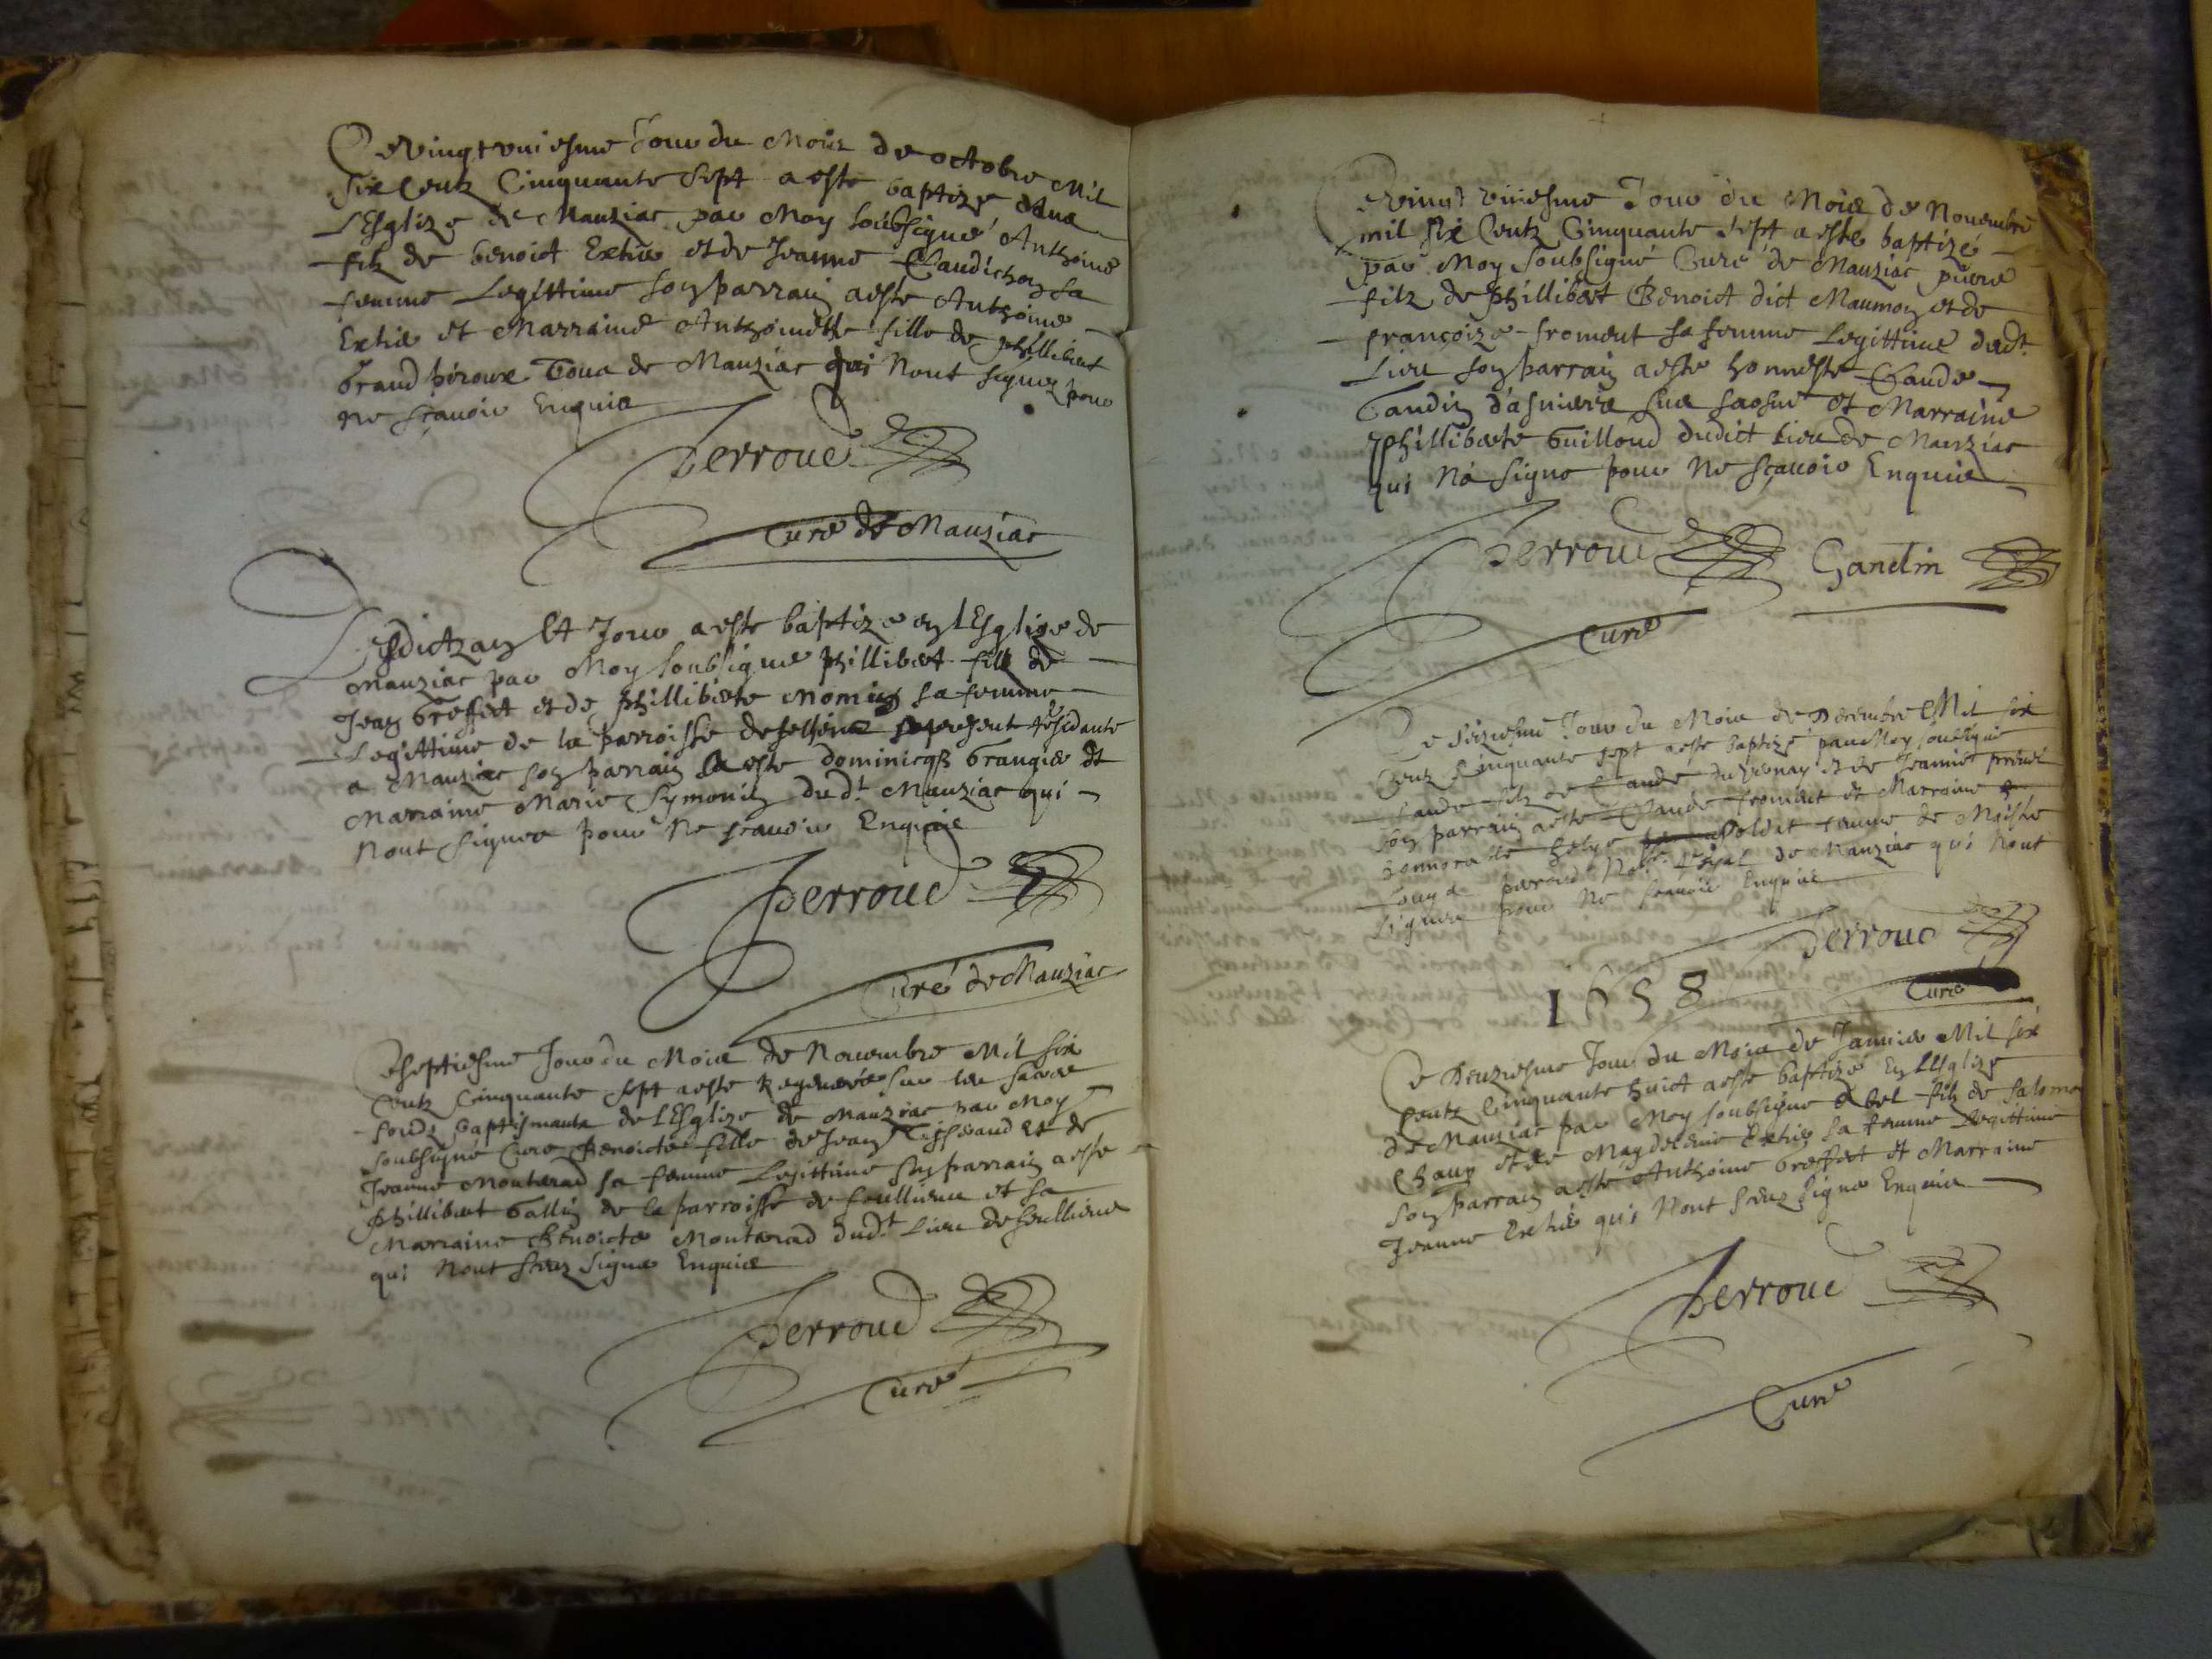 Ce vingt uniesme Jour du Mois de octobre Mil
six Centz Cinquante sept a este baptizé dans
L'Esglize de Manziac par Moy soubsigné Anthoine
filz de benoict Extier et de Jeanne Gaudichon sa
femme Legittime son parrain a este Anthoine
Extier et Marraine Anthoinette fille de phillibert
Grand peroux Tous de Manziac qui Nont signez pour
Ne sçauoir Enquis
Perroud
Curé de Manziac
Lesdictz an Et Jour a este baptizé en l'Esglize de
Manziac par Moy soubsigné phillibert filz de
Jean Greffet et de philliberte Nomin sa femme
Legittime de la parroisse de present residante
a Manziac son parrain a este dominicque Grangier Et
Marraine Marie Symonin dud.t Manziac qui
Nont signes pour Ne scauoir Enquis
Perroud
Curé de Manziac
Ce septiesme Jour du Mois de Nouembre Mil six
Centz Cinquante sept a este Regeneréé sur les sacrés
fondz Baptismaux de L'Esglize de Manziac par Moy
soubsigné Curé Benoicte fille de Jean et de
Jeanne Monterad sa femme Legittime son parrain a este
Phillibert Gallin de la parroisse de et sa
Marraine Benoicte Monterad dud.t Lieu de
qui Nont sceuz signer Enquis
Perroud
Curé
Ce vingt Jour du Mois de Nouembre
mil six Centz Cinquante sept a este baptizé
par Moy Soubsigné Curé de Manziac pierre
filz de Phillibert Benoict dict Maumon et de
françoize froment sa femme Legittime dud.t
Lieu son parrain a este honneste Claude
Gandin d'asnieres sur saosne et Marraine
Phillberte Guilloud dudict Lieu de Manziac
qui Na signe pour Ne sçauoir Enquise
Perroud Gandin
Curé
Ce seiziesme Jour du Mois de Decembre Mil six
Centz Cinquante sept a este baptizé par Moy soubsigné
Claude filz de Claude du et de Jeanne
son parrain a este Claude froment et Marraine
honnorable femme de Maistre
Nore Royal de Manziac qui Nont
signez pour Ne scauoir Enquis
Perroud
Curé
1658
Ce Deuziesme Jour du Mois de Januier Mil six
Centz Cinquante huict a este baptizé En L'Esglize
de Manziac par Moy soubsigné Abel filz de Salomon
Chaux et de Magdeleine Extier sa femme Legittime
son parrain a esté Anthoine Greffet et Marraine
Jeanne Extier qui Nont sceuz signer Enquis
Perroud
Curé